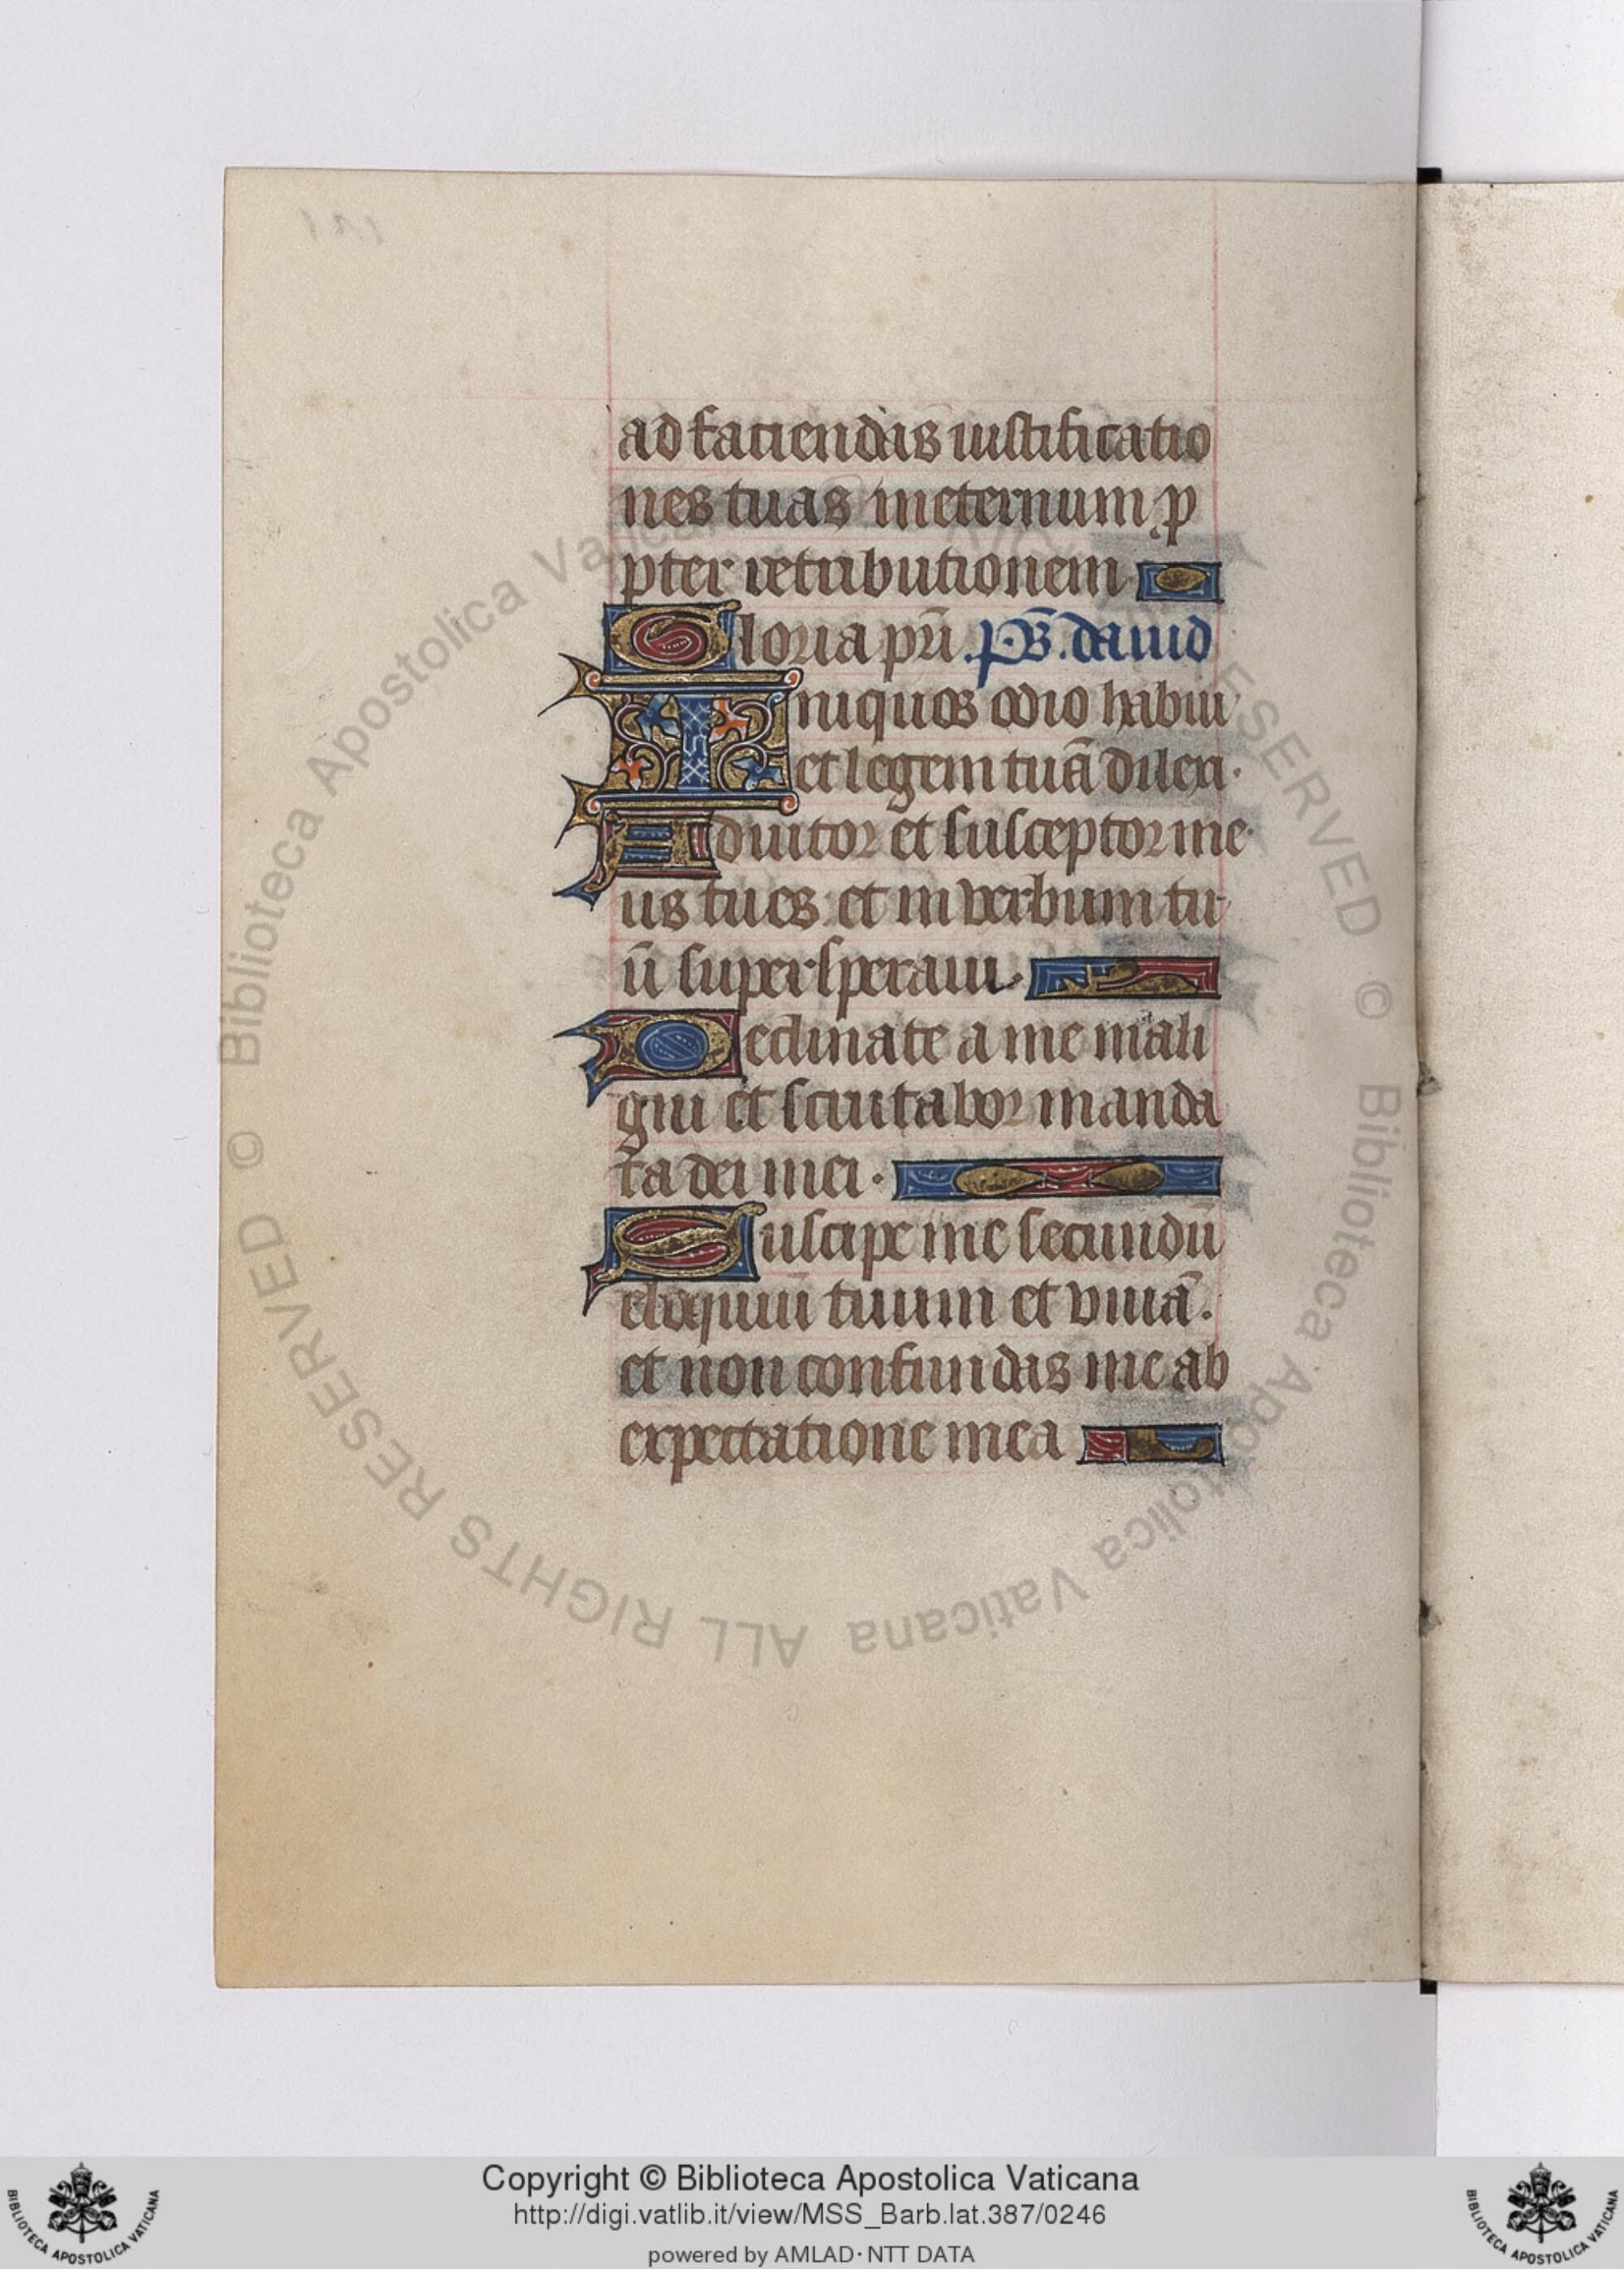 ad faciendas iustificatio
nes tuas ineternum ꝓ
pter retributionem
Gloria pr̄i. ps̄. dauid
Iniquos odio habui
et legem tuā dilexi.
Adiutor et susceptor me
us tu es: et in verbum tu
ū supersperaui.
Declinate a me mali
gni et scrutabor manda
ta dei mei.
Suscipe me secundū
eloquiū tuum et viuā.
et non confundas me ab
expectatione mea
© Biblioteca Apostolica Vaticana ALL RIGHTS RESERVED
© Biblioteca Apostolica Vaticana ALL RIGHTS RESERVED
Copyright © Biblioteca Apostolica Vaticana
http://digi.vatlib.it/view/MSS_Barb.lat.387/0246
powered by AMLAD · NTT DATA
BIBLIOTECA APOSTOLICA VATICANA
BIBLIOTECA APOSTOLICA VATICANA